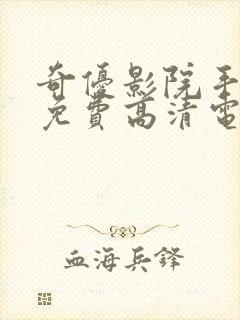 奇優影院手
免費高清電
血海兵鋒